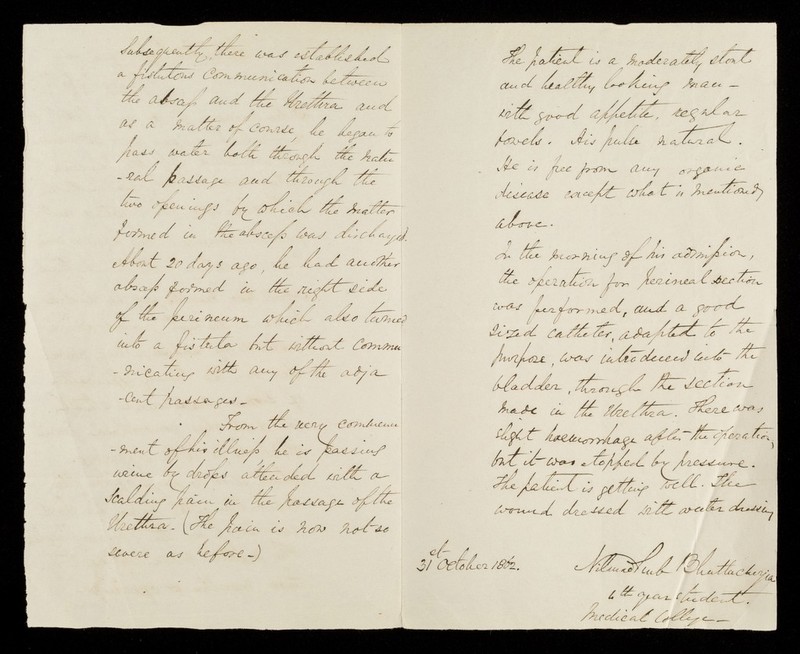 Subsequently, there was established
a fistulous communication between
the abscess and the Urethra and
as a matter of course, he began to
pass water both through the natu
-ral passage and through the
two openings by which the matter
formed in the abscess was discharged.
About 20 days ago, he had another
abscess formed in the right side
of the perineum which also turned
into a fistula but without commu
-nicating with any of the adja
-cent passages -
From the very commence
-ment of his illness he is passing
urine by drops attended with a
scalding pain in the passage of the
Urethra. (The pain is now not so
severe as before -)
The patient is a moderately stout
and healthy looking man -
with good appetite, regular
bowels. His pulse natural.
He is free from any organic
disease except what is mentioned
above.
In the morning of his admission,
the operation for perineal section
was performed, and a good
sized catheter, adapted to the
purpose, was introduced into the
bladder, through the section
made in the Urethra. There was
slight haemorrhage after the operation,
but it was stopped by pressure.
The patient is getting well. The
wound dressed with water dressing
31st October 1862.
Bhuttacherjea
4th year student.
Medical College -